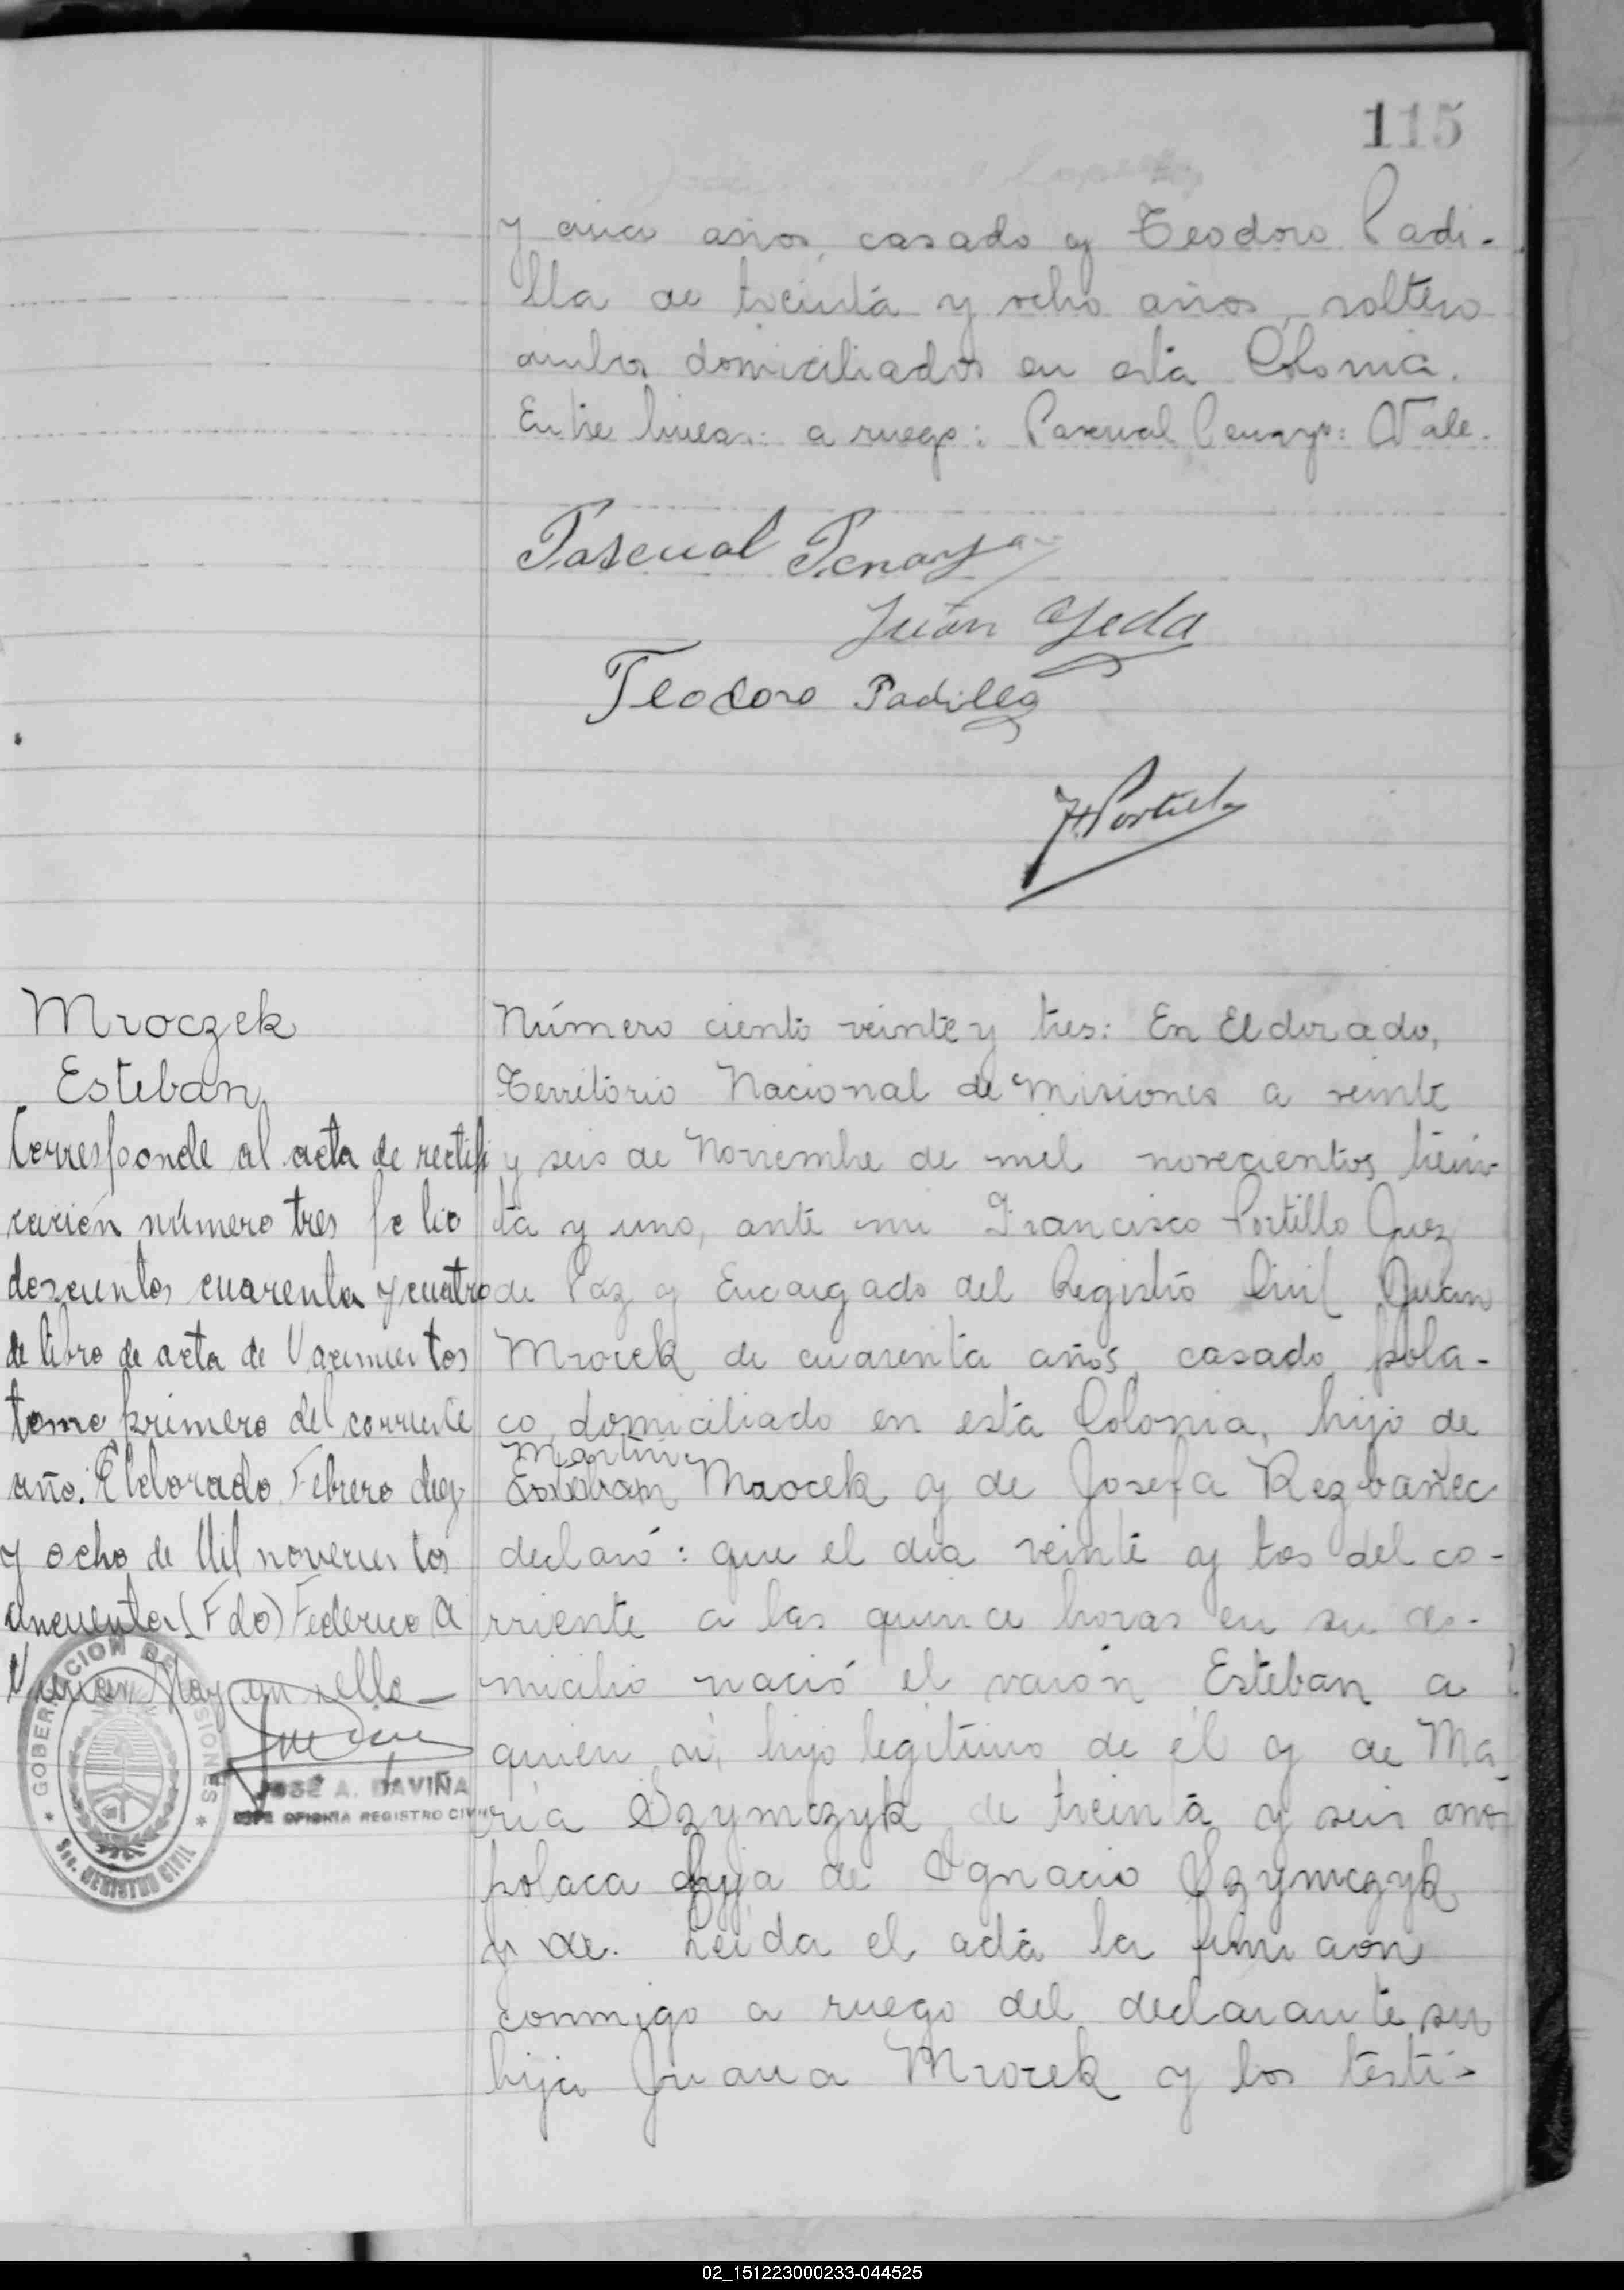 115
y cinco años, casado y Teodoro Padi-
lla de treinta y ocho años, soltero
ambos domiciliados en esta Colonia.
Entre lineas: a ruego: Pascual Penayo: Vale.
Pascual Penayo
Juan Ojeda
Teodoro Padilla
F. Portillo
Mroczek
Esteban
Corresponde al acta de rectifi
cación número tres folio
doscientos cuarenta y cuatro
de libro de acta de Nacimientos
tomo primero del corriente
año. Eldorado Febrero diez
y ocho de Mil novecientos
cincuenta (Fdo) Federico A
Hay un sello
GOBERNACION DE MISIONES
Sec. REGISTRO CIVIL
JOSÉ A. DAVIÑA
JEFE OFICINA REGISTRO CIVIL
Número ciento veinte y tres: En Eldorado,
Territorio Nacional de Misiones a veinte
y seis de Noviembre de mil novecientos trein-
ta y uno, ante mi Francisco Portillo Juez
de Paz y Encargado del Registro Civil Juan
Mrocek de cuarenta años, casado, pola-
co, domiciliado en esta Colonia, hijo de
Martin
Esteban Mrocek y de Josefa Rezbañec
declaró: que el dia veinte y tres del co-
rriente a las quince horas en su do-
micilio nació el varón Esteban a
quien vi, hijo legítimo de él y de Ma-
ria Szymczyk de treinta y seis años
polaca hija de Ignacio Szymczyk
y de. Leida el acta la firmaron
conmigo a ruego del declarante su
hija Juana Mrocek y los testi-
02_151223000233-044525